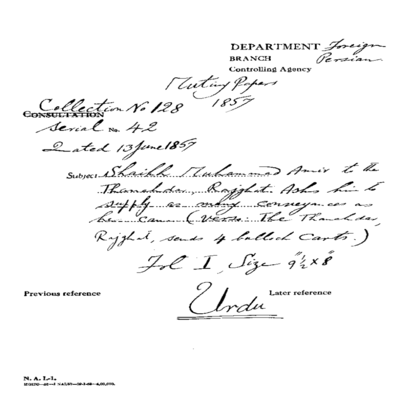 DEPARTMENT Foreign
BRANCH Persian
Controlling Agency
Mutiny Papers
Collection No 128 1857
CONSULTATION
Serial No. 42
Dated 13 June 1857
Subject Shaikh Muhammad Amir to the
Thanahdar, Rajghat. Asks him to
supply as many conveyances as
he can (Verso: The Thanahdar,
Rajghat, sends 4 bullock carts.)
Fol I, Size 9½" x 8"
Previous reference
Later reference
Urdu
N. A. I.-1.